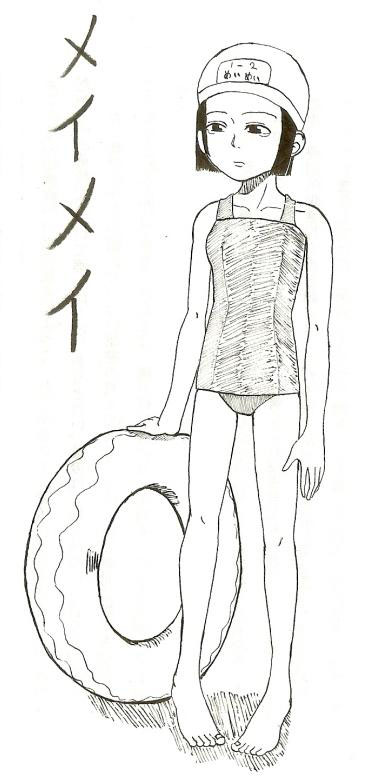 メイメイ
1-2
めいめい